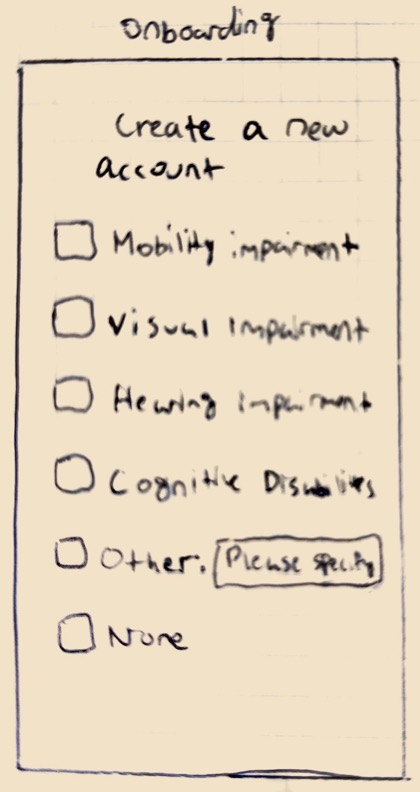 Onboarding
Create a new
account
Mobility impairment
Visual Impairment
Hearing Impairment
Cognitive Disabilities
Other: Please specify
None